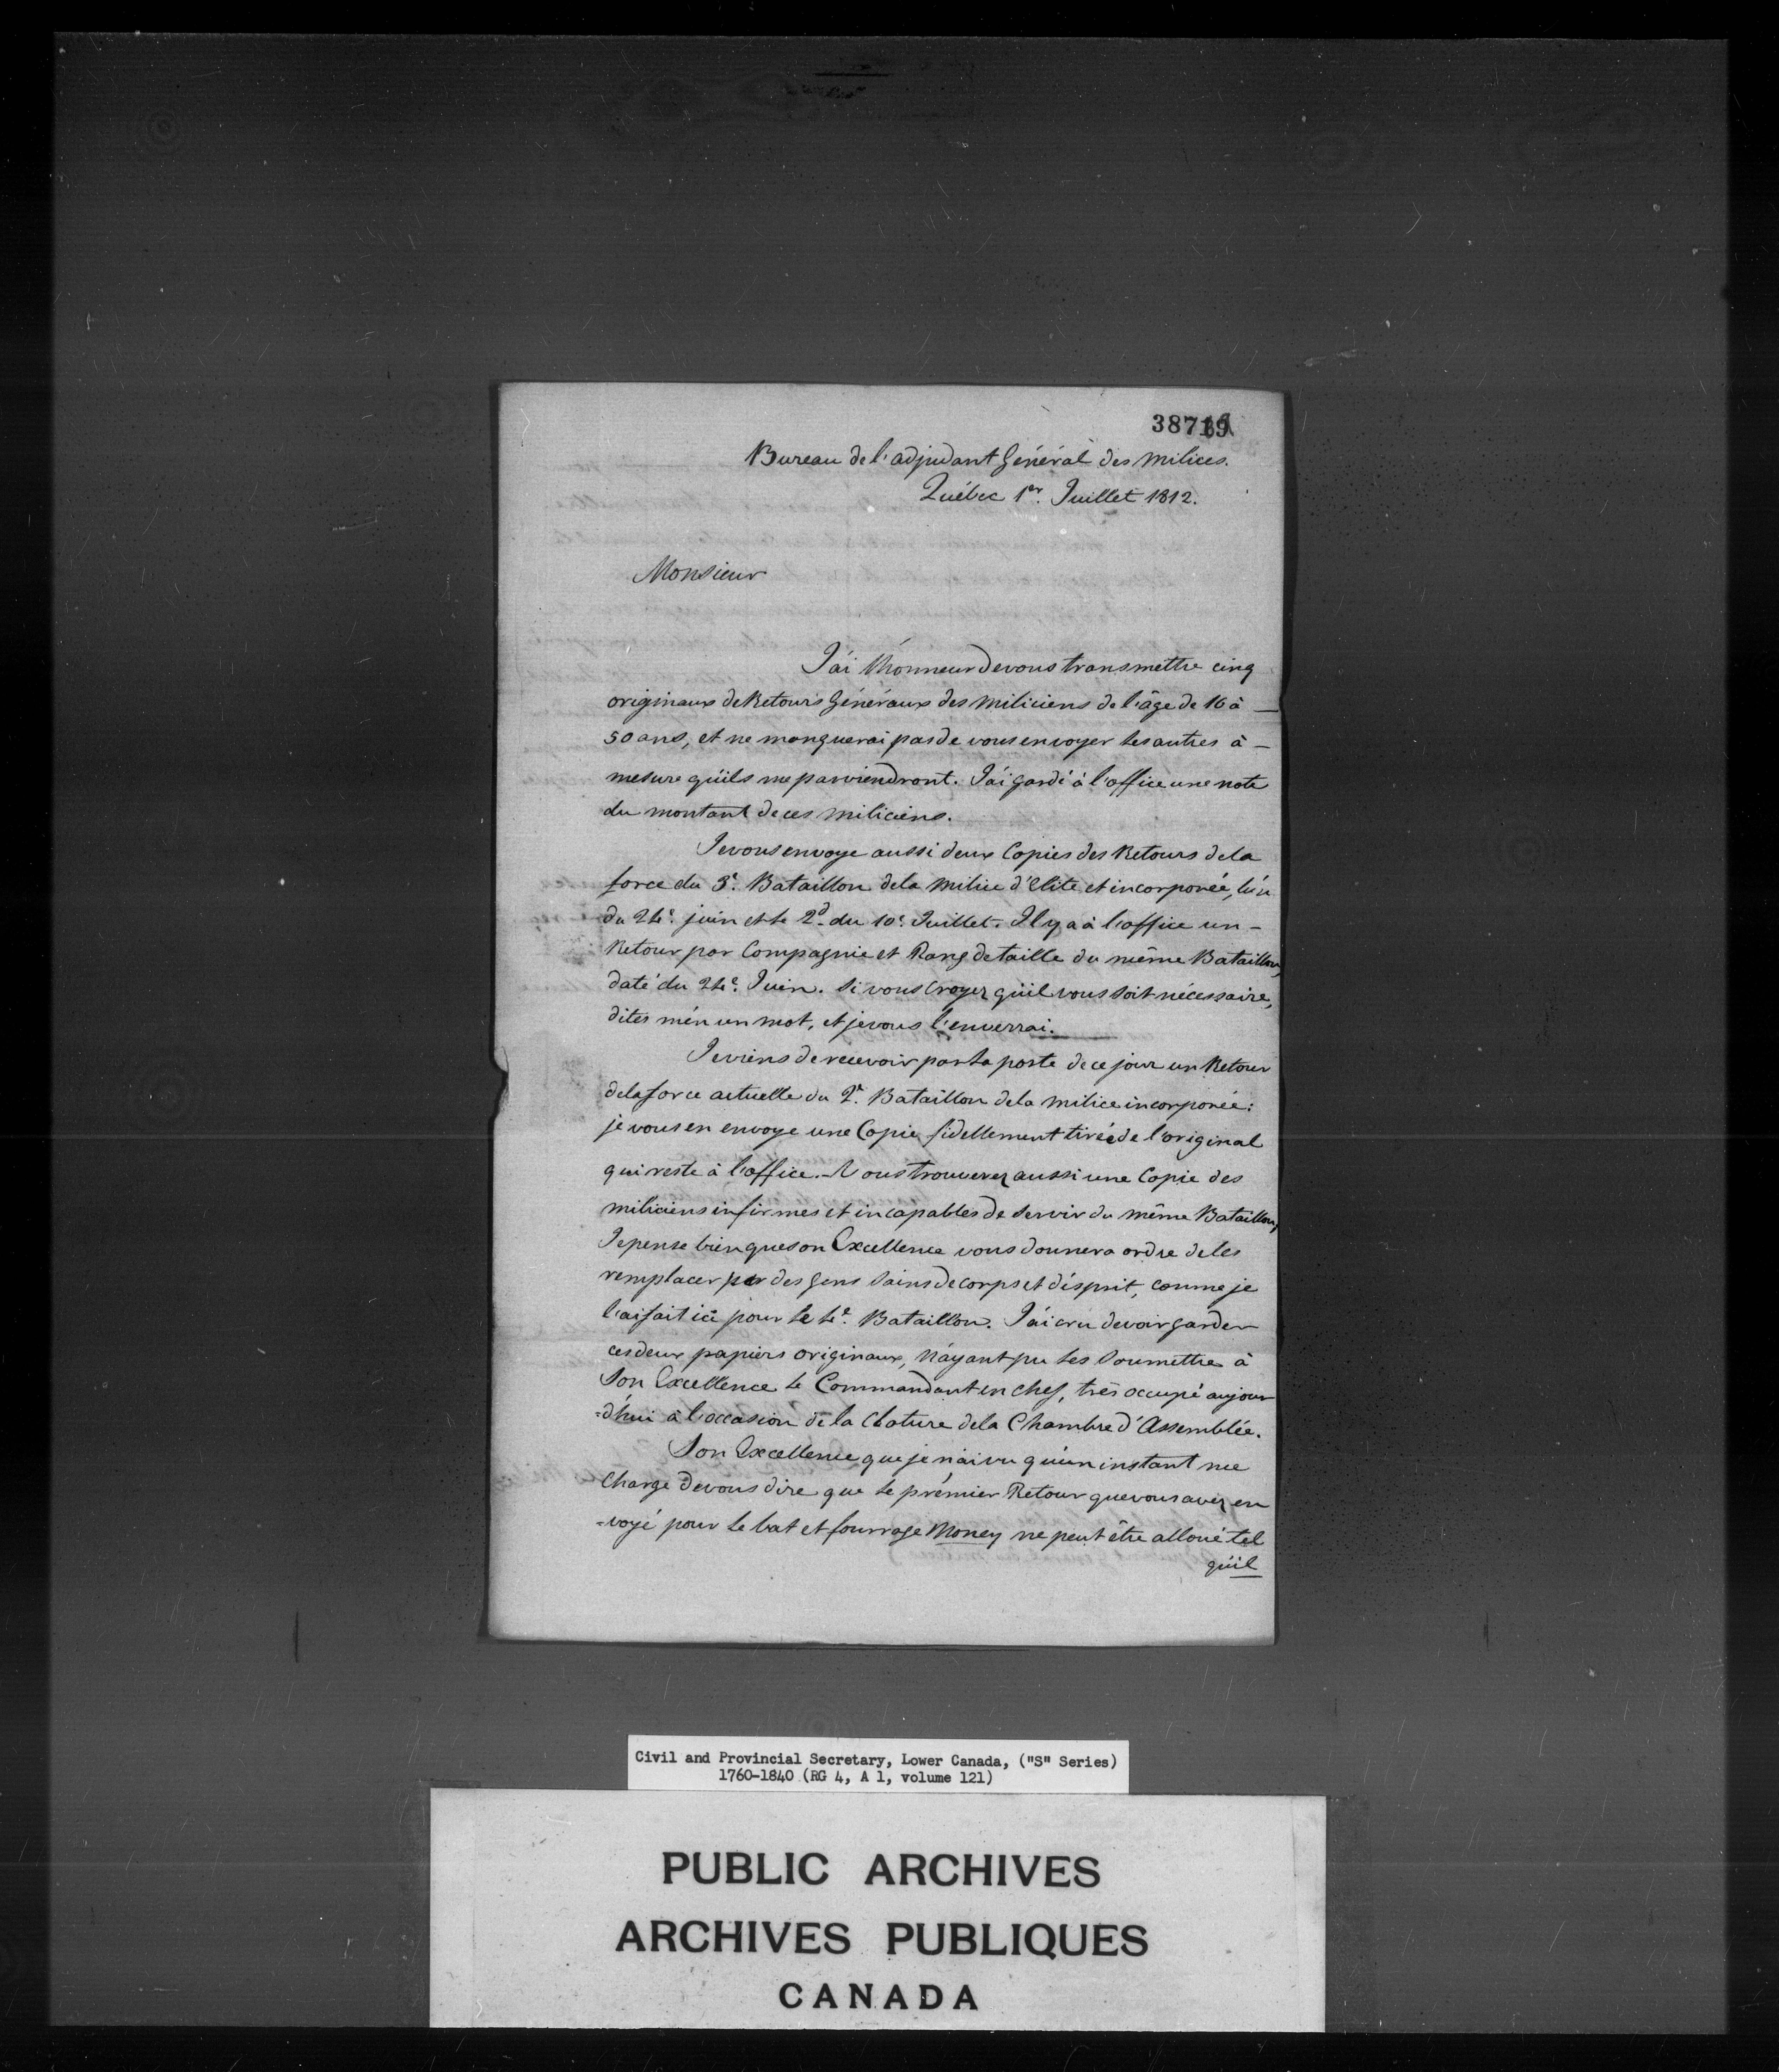 38719
Bureau de l'adjudant Général des Milices.
Québec 1er. Juillet 1812.
Monsieur
J'ai l'honneur de vous transmettre cinq
originaux de Retours Généraux des Miliciens de l'âge de 16 à —
50 ans, et ne manquerai pas de vous envoyer les autres à —
mesure qu'ils me parviendront. J'ai gardé à l'office une note
du montant de ces Miliciens.
Je vous envoye aussi deux Copies des Retours de la
force du 3e. Bataillon de la Milice d'Elite et incorporée, l'un
du 24e. juin et le 2d. du 10e. Juillet. Il y a à l'office un —
Retour par Compagnie et Rang de taille du même Bataillon,
daté du 24e. Juin. Si vous croyez qu'il vous soit nécessaire,
dites m'en un mot, et je vous l'enverrai.
Je viens de recevoir par la poste de ce jour un Retour
de la force actuelle du 2e. Bataillon de la Milice incorporée:
je vous en envoye une Copie fidellement tirée de l'original
qui reste à l'office. — Vous trouverez aussi une Copie des
Miliciens infirmes et incapables de servir du même Bataillon,
Je pense bien que son Excellence vous donnera ordre de les
remplacer par des gens sains de corps et d'esprit, comme je
l'ai fait ici pour le 4e. Bataillon. J'ai cru devoir garder
ces deux papiers originaux, n'ayant pu les soumettre à
Son Excellence le Commandant en chef, très occupé aujour
=d'hui à l'occasion de la Cloture de la Chambre d'Assemblée.
Son Excellence que je n'ai vu qu'un instant me
charge de vous dire que le prémier Retour que vous avez en
=voyé pour le bat et fourrage Money ne peut être alloué tel
qu'il
Civil and Provincial Secretary, Lower Canada, ("S" Series)
1760-1840 (RG 4, A 1, volume 121)
PUBLIC ARCHIVES
ARCHIVES PUBLIQUES
CANADA